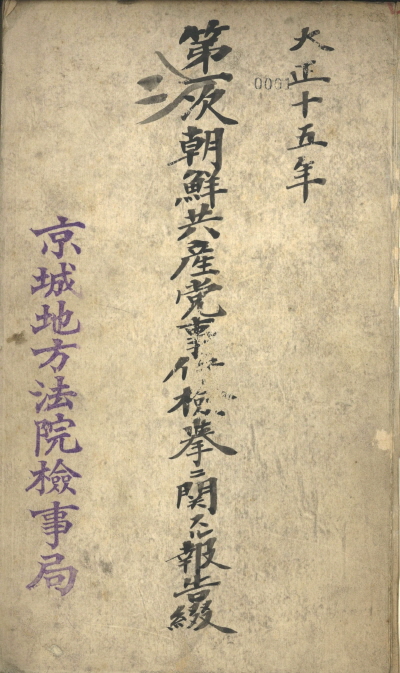 大正十五年
0001
第一次朝鮮共産党事件檢挙ニ関スル報告綴
二
京城地方法院檢事局